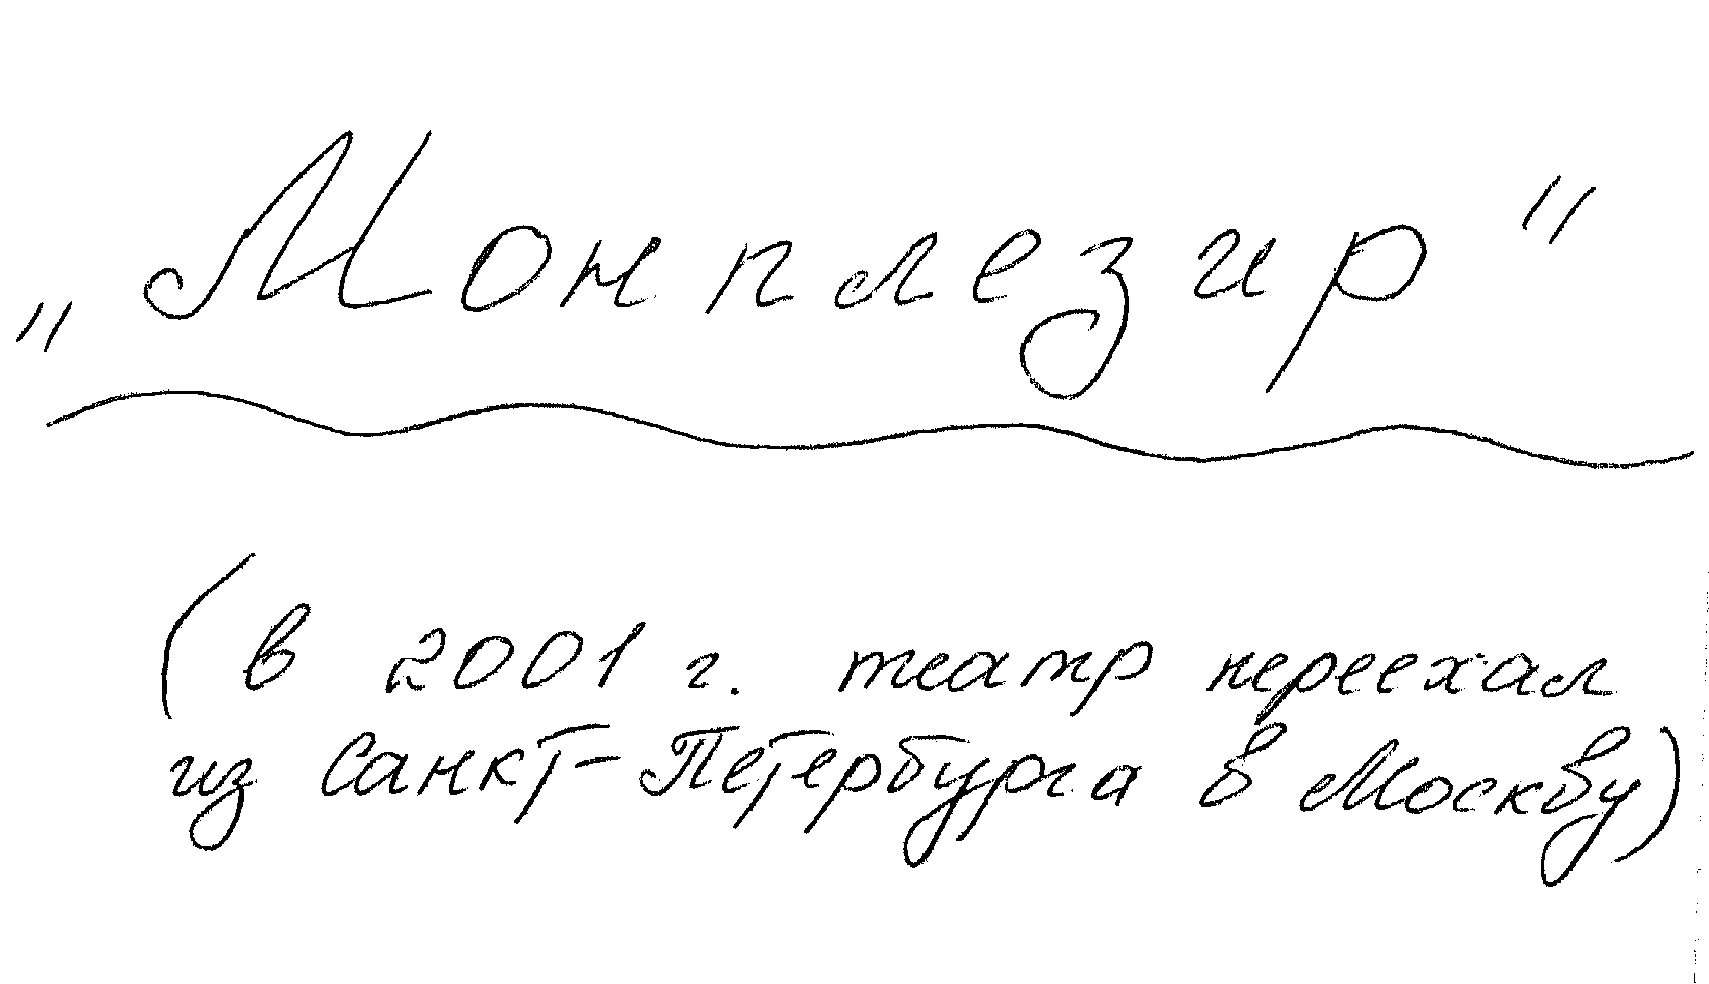 „Монплезир"
(в 2001 г. театр переехал
из Санкт-Петербурга в Москву)